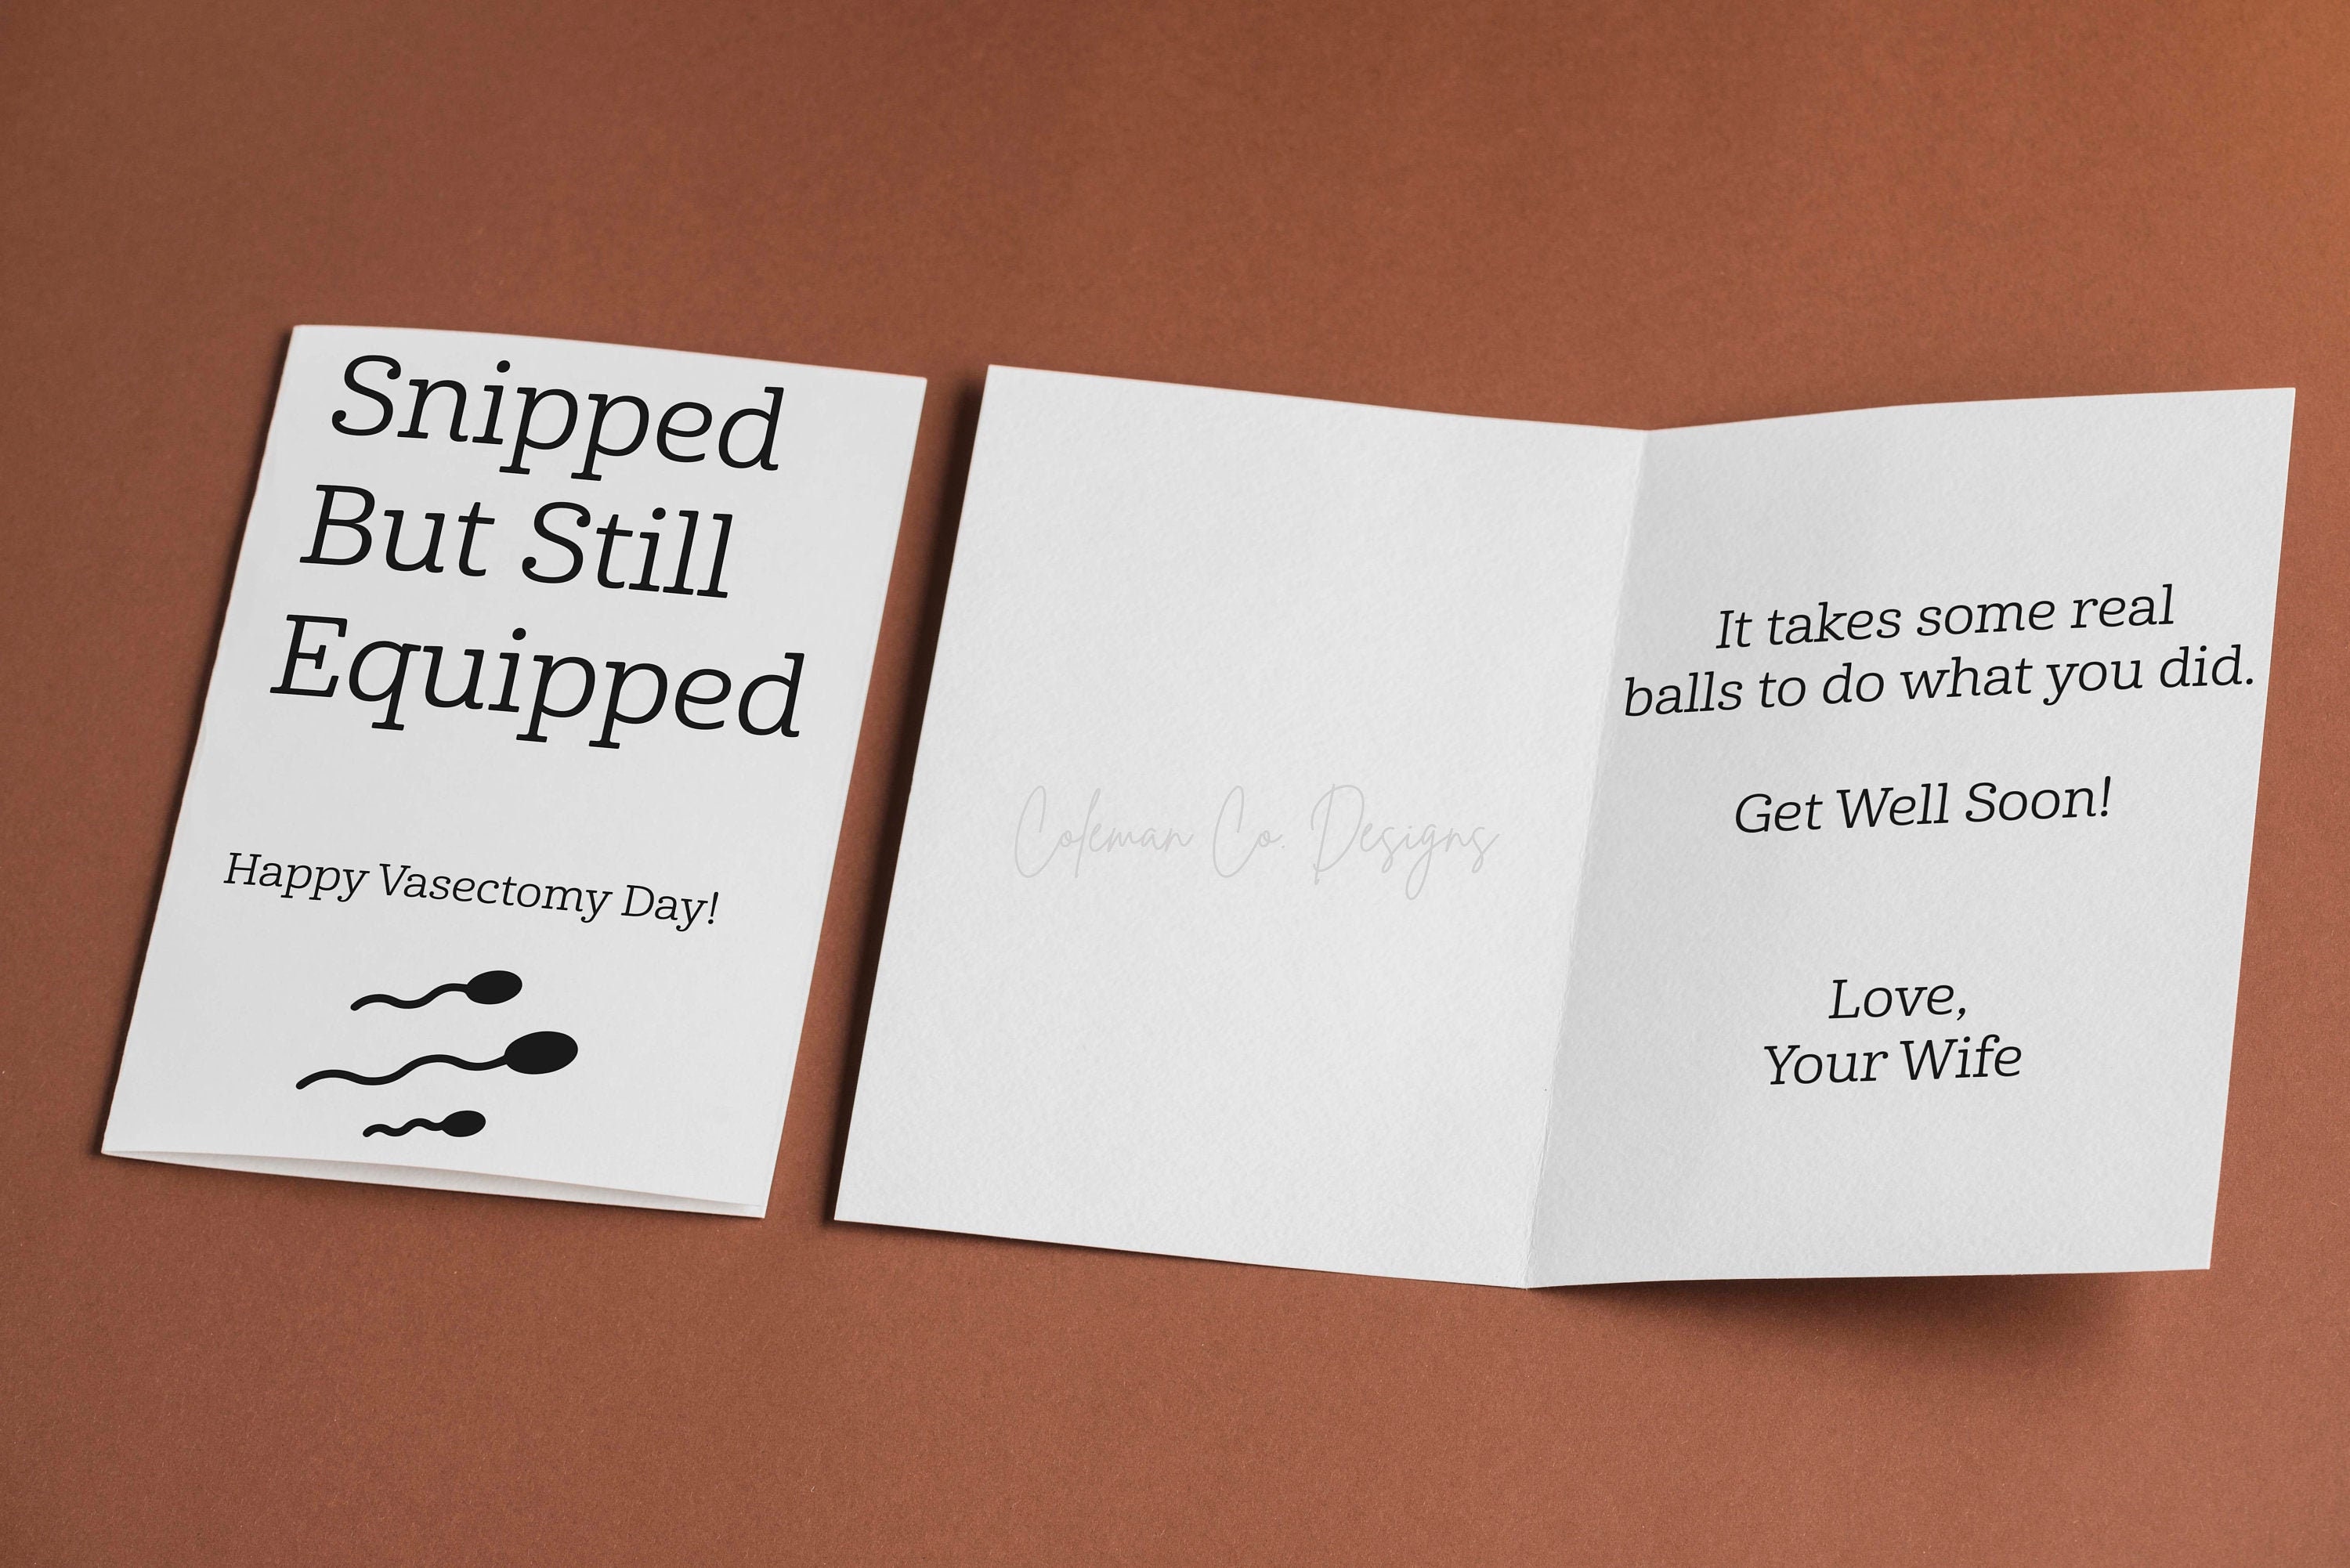 Snipped
But Still
Equipped
Happy Vasectomy Day!
Coleman Co. Designs
It takes some real
balls to do what you did.
Get Well Soon!
Love,
Your Wife